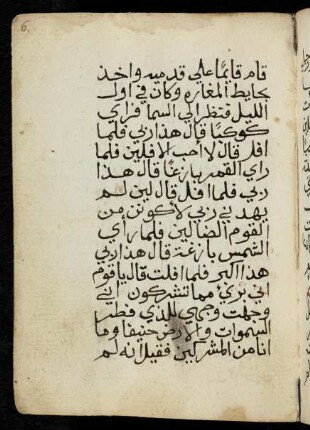 6
قام قايمًا علي قدميه واخذ
بحايط المغاره وكان في اول
الليل فنظر الي السما فراي
كوكبًا قال هذا ربي فلما
افل قال لا احب الافلين فلما
راي القمر بازغًا قال هذا
ربي فلما افل قال لين لم
يهديني ربي لاكونن من
القوم الضالين فلما راي
الشمس بازغة قال هذا ربي
هذا اكبر فلما افلت قال ياقوم
اني بريء مما تشركون اني
وجهت وجهي للذي فطر
السموات والارض حنيفا وما
انا من المشركين فقيل انه لم